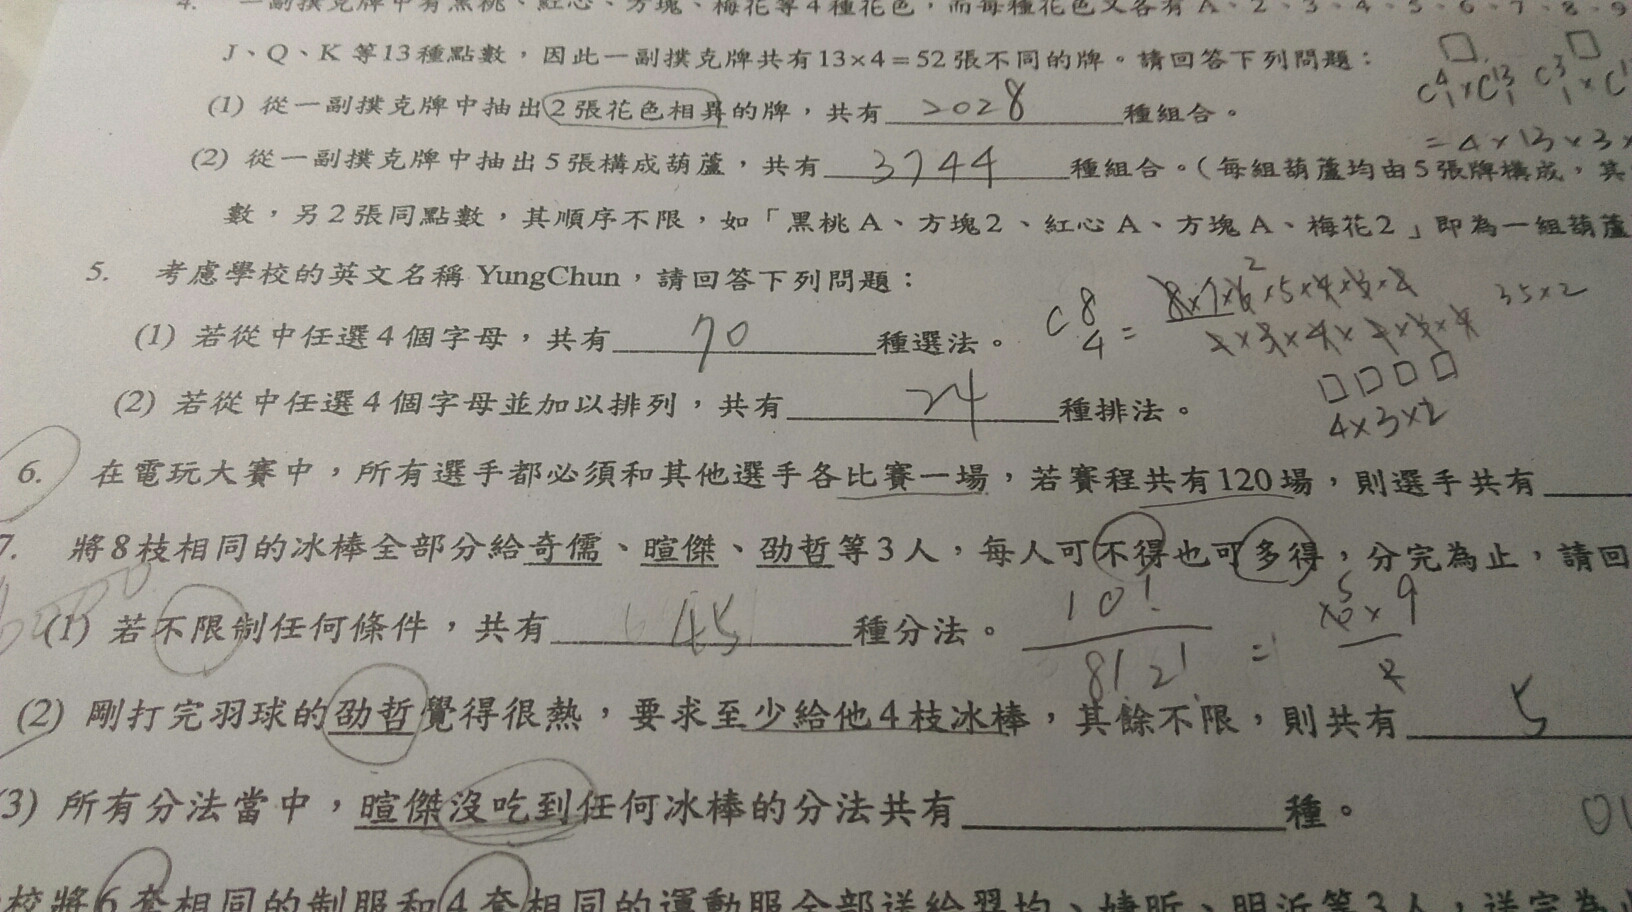 4. 一副撲克牌中有黑桃、紅心、方塊、梅花等4種花色，而每種花色又各有A、2、3、4、5、6、7、8、9
J、Q、K等13種點數，因此一副撲克牌共有13×4=52張不同的牌。請回答下列問題：
(1) 從一副撲克牌中抽出2張花色相異的牌，共有 2028 種組合。
= 4 × 13 × 3 ×
(2) 從一副撲克牌中抽出5張構成葫蘆，共有 3744 種組合。(每組葫蘆均由5張牌構成，其
數，另2張同點數，其順序不限，如「黑桃A、方塊2、紅心A、方塊A、梅花2」即為一組葫蘆
5. 考慮學校的英文名稱YungChun，請回答下列問題：
(1) 若從中任選4個字母，共有 70 種選法。
35×2
(2) 若從中任選4個字母並加以排列，共有 24 種排法。
4×3×2
6. 在電玩大賽中，所有選手都必須和其他選手各比賽一場，若賽程共有120場，則選手共有
7. 將8枝相同的冰棒全部分給奇儒、暄傑、劭哲等3人，每人可不得也可多得，分完為止，請回
(1) 若不限制任何條件，共有 45 種分法。
10!
8!2!
(2) 剛打完羽球的劭哲覺得很熱，要求至少給他4枝冰棒，其餘不限，則共有 5
(3) 所有分法當中，暄傑沒吃到任何冰棒的分法共有 種。
校將6套相同的制服和4套相同的運動服全部送給